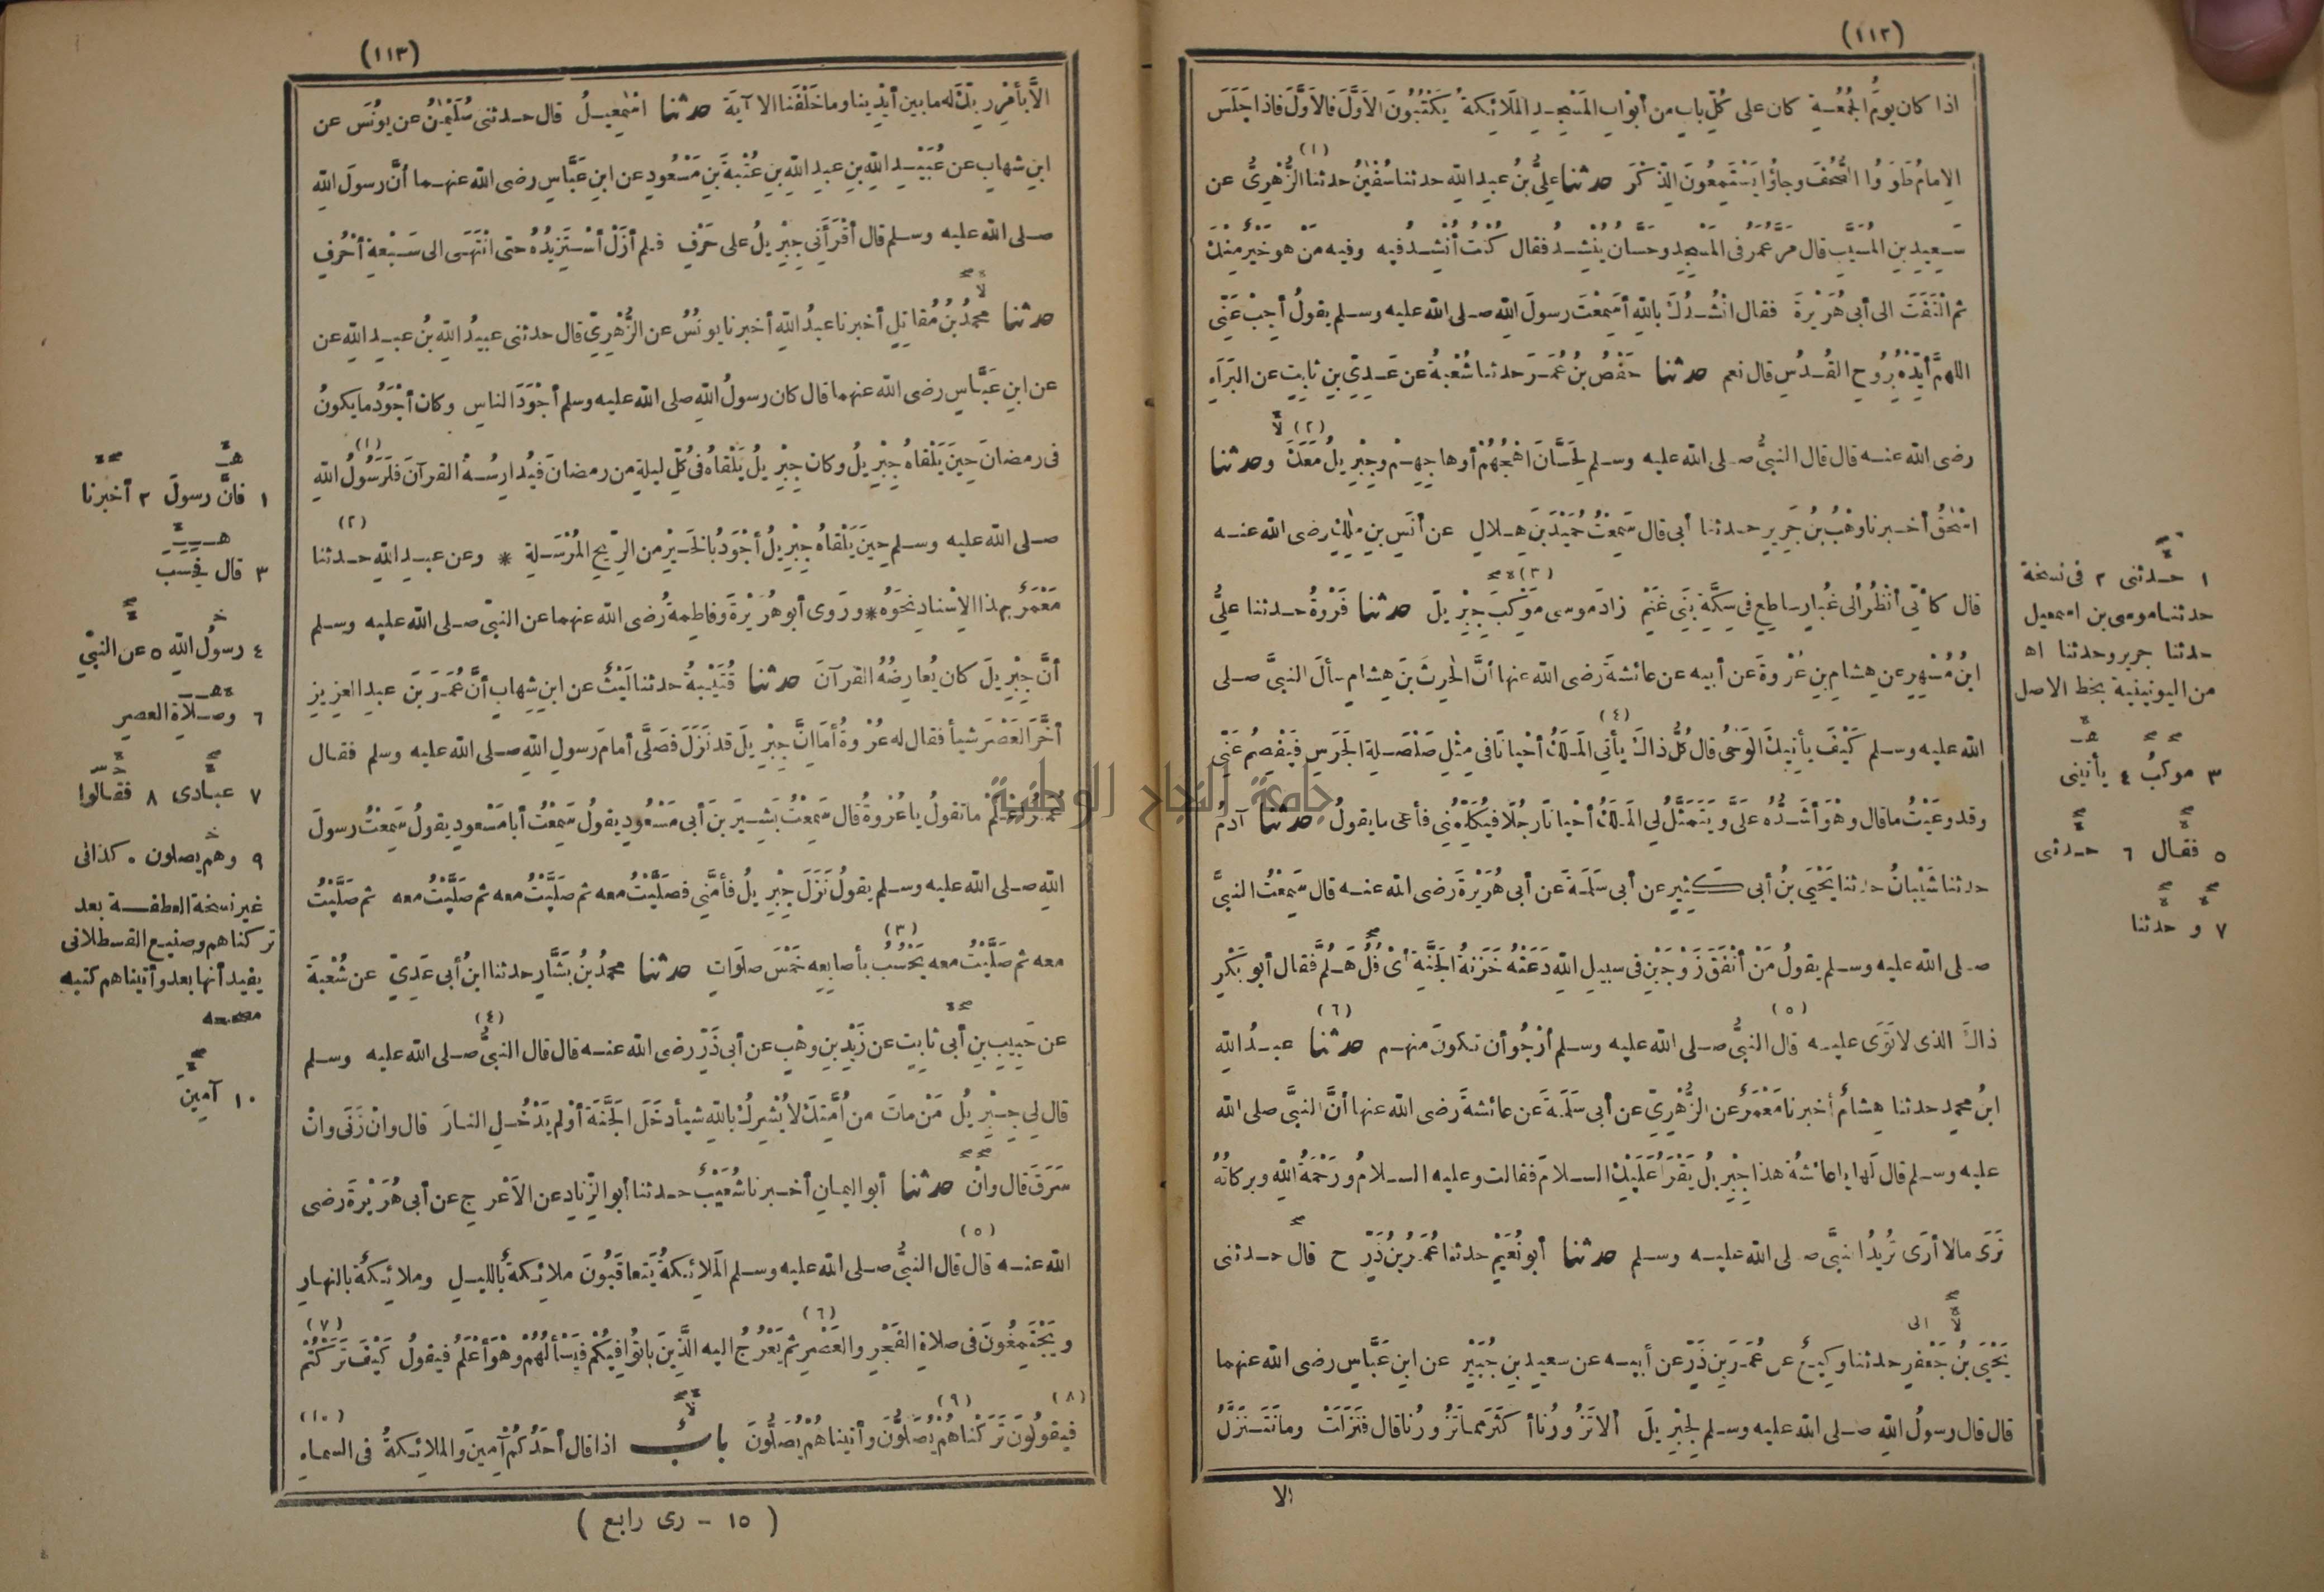 (١١٢)
اذا كان يومُ الجُمُعَةِ كان على كُلِّ بابٍ من أبوابِ المَسْجِدِ المَلائِكةُ يَكْتُبُونَ الاَوَّلَ فالاَوَّلَ فاذا جَلَسَ
(١)
الامامُ طَوَوُا الصُّحُفَ وجاؤُا يَسْتَمِعُونَ الذِّكْرَ حدثنا علىُّ بنُ عبدِ اللهِ حدثنا سُفْيٰنُ حدثنا الزُّهْرِىُّ عن
سَعِيدِ بنِ المُسَيَّبِ قال مَرَّ عُمَرُ فى المَسْجِدِ وحَسَّانُ يُنْشِدُ فقال كُنْتُ أُنْشِدُ فيه وفيه مَنْ هو خَيْرٌ مِنْكَ
ثم الْتَفَتَ الى أبى هُرَيْرةَ فقال انْشُدُكَ باللهِ أسَمِعْتَ رسولَ اللهِ صلى الله عليه وسلم يقولُ أجِبْ عَنِّى
اللهمَّ أيِّدْهُ بِرُوحِ القُدُسِ قال نعم حدثنا حَفْصُ بنُ عُمَرَ حدثنا شُعْبةُ عن عَدِىِّ بنِ ثابِتٍ عن البَرَاءِ
(٢) لا
رضى الله عنه قال قال النبىُّ صلى الله عليه وسلم لِحَسَّانَ اهْجُهُمْ أوهاجِهِمْ وجِبْرِيلُ مَعَكَ وحدثنا
اسْحٰقُ أخبرنا وَهْبُ بنُ جَرِيرٍ حدثنا أبى قال سَمِعْتُ حُمَيْدَ بنَ هِلالٍ عن أنَسِ بنِ مٰلِكٍ رضى الله عنه
(٣)
قال كأنِّى أنْظُرُ الى غُبارٍ ساطِعٍ فى سِكَّةِ بَنِى غَنْمٍ زادَ موسى مَوْكِبَ جِبْرِيلَ حدثنا فَرْوةُ حدثنا علىُّ
ابنُ مُسْهِرٍ عن هِشامِ بنِ عُرْوةَ عن أبيه عن عائشةَ رضى الله عنها أنَّ الحٰرِثَ بنَ هِشامٍ سألَ النبىَّ صلى
(٤)
الله عليه وسلم كَيْفَ يأتِيكَ الوَحْىُ قال كُلُّ ذاكَ يأتى المَلَكُ أحْيانًا فى مِثْلِ صَلْصَلةِ الجَرَسِ فَيَفْصِمُ عَنِّى
وقد وعَيْتُ ما قال وهْوَ أشَدُّهُ علىَّ ويَتَمَثَّلُ لى المَلَكُ أحْيانًا رجُلًا فيُكَلِّمُنِى فأعى ما يقولُ حدثنا آدمُ
حدثنا شَيْبانُ حدثنا يَحْيَى بنُ أبى كَثِيرٍ عن أبى سَلَمةَ عن أبى هُرَيْرةَ رضى الله عنه قال سَمِعْتُ النبىَّ
صلى الله عليه وسلم يقولُ مَنْ أنْفَقَ زَوْجَيْنِ فى سبيلِ اللهِ دَعَتْهُ خَزَنةُ الجَنَّةِ أىْ فُلُ هَلُمَّ فقال أبو بَكْرٍ
(٥) (٦)
ذاكَ الذى لا تَوَى عليه قال النبىُّ صلى الله عليه وسلم أرْجُو أن تكونَ منهم حدثنا عبدُ اللهِ
ابنُ محمدٍ حدثنا هِشامٌ أخبرنا مَعْمَرٌ عن الزُّهْرِىِّ عن أبى سَلَمةَ عن عائشةَ رضى الله عنها أنَّ النبىَّ صلى الله
عليه وسلم قال لَها يا عائشةُ هذا جِبْرِيلُ يَقْرَأُ عَلَيْكِ السلامَ فقالت وعليه السلامُ ورَحْمَةُ اللهِ وبركاتُهُ
تَرَى مالا أرَى تُرِيدُ النبىَّ صلى الله عليه وسلم حدثنا أبو نُعَيْمٍ حدثنا عُمَرُ بنُ ذَرٍّ ح قال حدثنى
لا الى
يَحْيَى بنُ جَعْفَرٍ حدثنا وكِيعٌ عن عُمَرَ بنِ ذَرٍّ عن أبيه عن سعيدِ بنِ جُبَيْرٍ عن ابنِ عَبَّاسٍ رضى الله عنهما
قال قال رسولُ اللهِ صلى الله عليه وسلم لِجِبْرِيلَ ألا تَزُورُنا أكثَرَ مما تَزُورُنا قال فنَزَلَتْ وما نَتَنَزَّلُ
الا
١ حدثنى ٢ فى نسخة
حدثنا موسى بن اسمعيل
حدثنا جرير وحدثنا اه
من اليونينية بخط الاصل
٣ موكبُ ٤ يأتينى
٥ فقال ٦ حدثنى
٧ و حدثنا
(١١٣)
الاَّ بأمْرِ رَبِّكَ له ما بين أيْدِينا وما خَلْفَنا الآيةَ حدثنا اسْمٰعِيلُ قال حدثنى سُلَيْمٰنُ عن يونُسَ عن
ابنِ شهابٍ عن عُبَيْدِ اللهِ بنِ عبدِ اللهِ بنِ عُتْبةَ بنِ مَسْعُودٍ عن ابنِ عَبَّاسٍ رضى الله عنهما أنَّ رسولَ اللهِ
صلى الله عليه وسلم قال أقْرَأَنِى جِبْرِيلُ على حَرْفٍ فلم أزَلْ أسْتَزِيدُهُ حتى انْتَهَى الى سَبْعةِ أحْرُفٍ
لا
حدثنا محمدُ بنُ مُقاتِلٍ أخبرنا عبدُ اللهِ أخبرنا يونُسُ عن الزُّهْرِىِّ قال حدثنى عبيدُ اللهِ بنُ عبدِ اللهِ عن
عن ابنِ عَبَّاسٍ رضى الله عنهما قال كان رسولُ اللهِ صلى الله عليه وسلم أجْوَدَ الناسِ وكان أجْوَدُ ما يكونُ
(١)
فى رمضانَ حِينَ يَلْقاهُ جِبْرِيلُ وكان جِبْرِيلُ يَلْقاهُ فى كُلِّ ليلةٍ من رمضانَ فيُدارِسُهُ القرآنَ فلَرَسُولُ اللهِ
(٢)
صلى الله عليه وسلم حِينَ يَلْقاهُ جِبْرِيلُ أجْوَدُ بالخَيْرِ من الرِّيحِ المُرْسَلةِ * وعن عبدِ اللهِ حدثنا
مَعْمَرٌ بهذا الاِسْنادِ نحوَهُ * ورَوى أبو هُرَيْرةَ وفاطِمةُ رضى الله عنهما عن النبىّ صلى الله عليه وسلم
أنَّ جِبْرِيلَ كان يُعارِضُهُ القرآنَ حدثنا قُتَيْبةُ حدثنا لَيْثٌ عن ابنِ شِهابٍ أنَّ عُمَرَ بنَ عبدِ العزيزِ
أخَّرَ العَصْرَ شيأ فقال له عُرْوةُ أما انَّ جِبْرِيلَ قد نَزَلَ فصَلَّى أمامَ رسولِ اللهِ صلى الله عليه وسلم فقال
عُمَرُ اعْلَمْ ما تقولُ يا عُرْوةُ قال سَمِعْتُ بَشِيرَ بنَ أبى مَسْعُودٍ يقولُ سَمِعْتُ أبا مَسْعُودٍ يقولُ سَمِعْتُ رسولَ
اللهِ صلى الله عليه وسلم يقولُ نَزَلَ جِبْرِيلُ فأمَّنِى فصَلَّيْتُ معه ثم صَلَّيْتُ معه ثم صَلَّيْتُ معه ثم صَلَّيْتُ
(٣)
معه ثم صَلَّيْتُ معه يَحْسُبُ بأصابِعِه خَمْسَ صلَواتٍ حدثنا محمدُ بنُ بَشَّارٍ حدثنا ابنُ أبى عَدِىٍّ عن شُعْبةَ
(٤)
عن حَبِيبِ بنِ أبى ثابِتٍ عن زَيْدِ بنِ وهْبٍ عن أبى ذَرٍّ رضى الله عنه قال قال النبىُّ صلى الله عليه وسلم
قال لى جِبْرِيلُ مَنْ ماتَ من أُمَّتِكَ لا يُشْرِكُ باللهِ شيأ دخَلَ الجَنَّةَ أوْ لم يَدْخُلِ النارَ قال وانْ زَنَى وانْ
سَرَقَ قال وانْ حدثنا أبو اليمانِ أخبرنا شُعَيْبٌ حدثنا أبو الزِّنادِ عن الاَعْرجِ عن أبى هُرَيْرةَ رضى
(٥)
الله عنه قال قال النبىُّ صلى الله عليه وسلم المَلائِكةُ يَتَعاقَبُونَ ملائِكةٌ بالليلِ وملائِكةٌ بالنهارِ
(٦) (٧)
ويَجْتَمِعُونَ فى صلاةِ الفَجْرِ والعَصْرِ ثم يَعْرُجُ اليه الَّذِينَ باتُوا فيكُمْ فيَسْألُهُمْ وهْوَ أعْلَمُ فيقولُ كَيْفَ تَرَكْتُمْ
(٨) (٩) (١٠)
فيقولُونَ تَرَكْناهُمْ يُصَلُّونَ وأتيناهُمْ يُصَلُّونَ بابٌ اذا قال أحَدُكُمْ آمِينَ والملائِكةُ فى السماءِ
( ١٥ - رى رابع )
١ فانَّ رسولَ ٢ أخبرنا
٣ قال فَحَسَبَ
٤ رسولُ اللهِ ٥ عن النبىِّ
٦ وصلاةِ العصرِ
٧ عبادى ٨ فقالوا
٩ وهم يصلون . كذا فى
غير نسخة العطفة بعد
تركناهم وصنيع القسطلانى
يفيد أنها بعد وأتيناهم كتبه
مصححه
١٠ آمِينَ
جامعة النجاح الوطنية